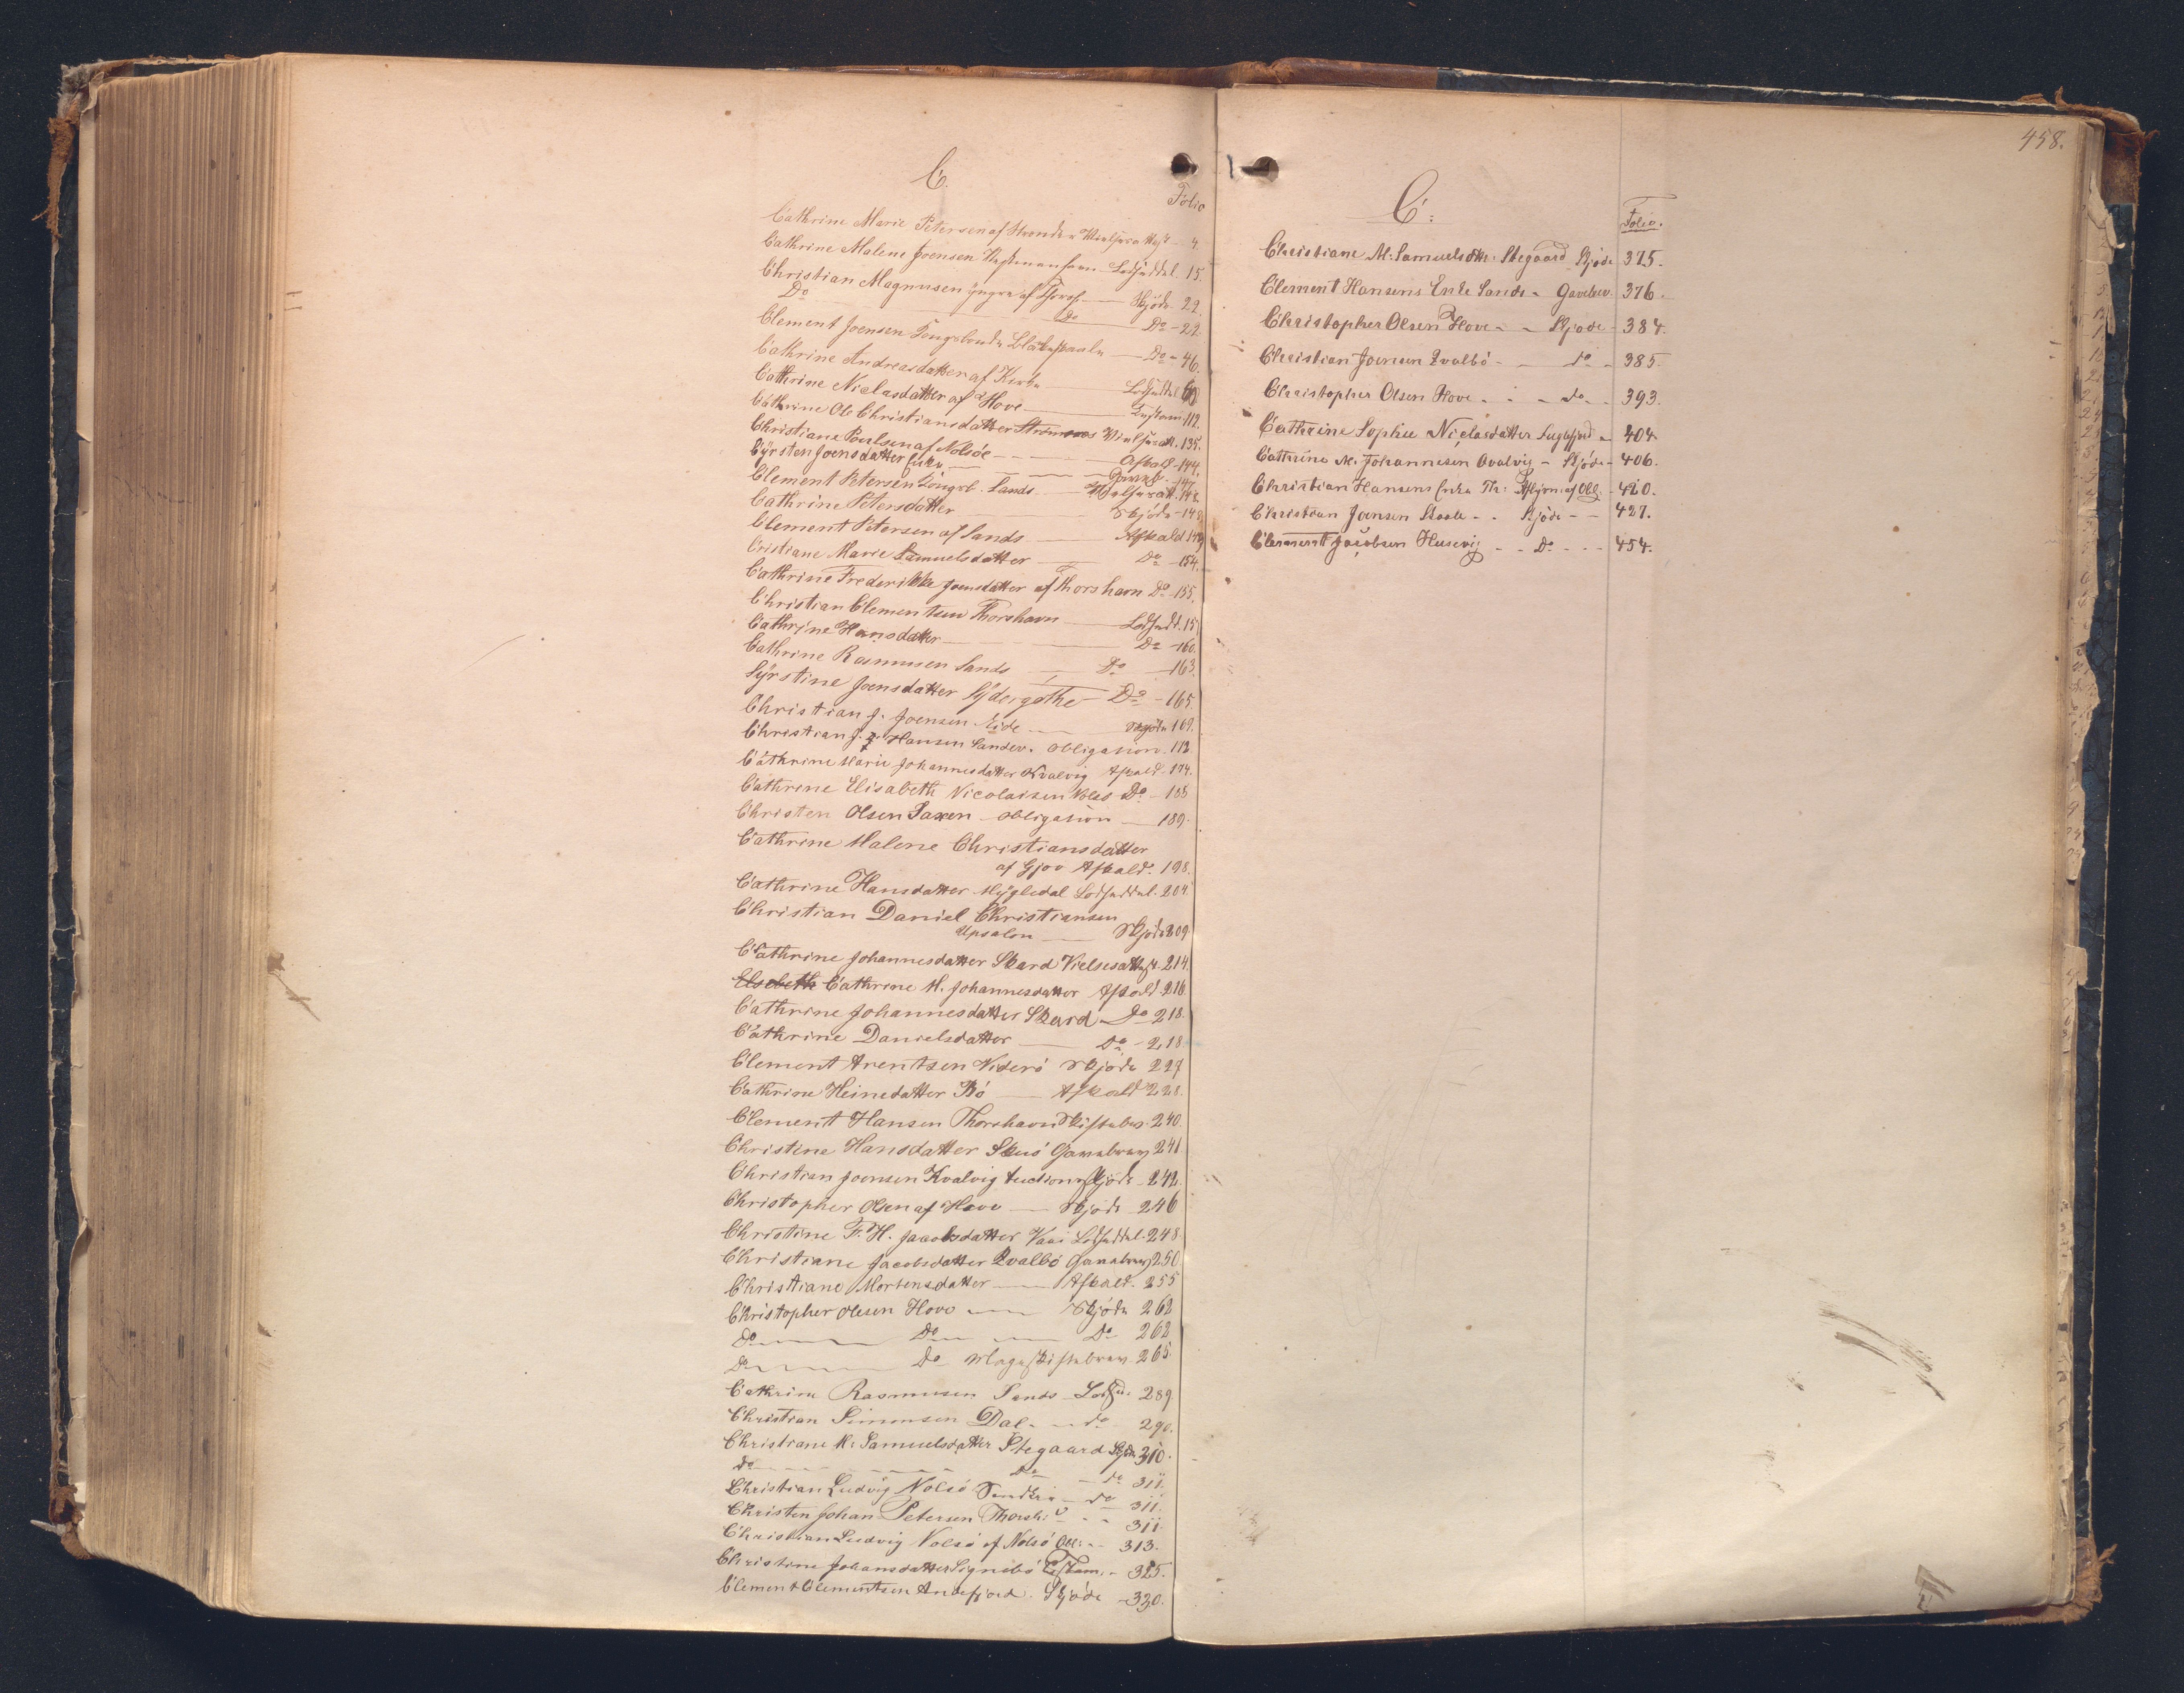 C.
Folio
Cathrine Marie Petersen af Strender Vielsesattest - 4.
Cathrine Malene Joensen Vestmanhavn Lodseddel. 15.
Christian Magnusen yngre af Skjöde. 22.
Do Do Do - 22.
Clement Joensen Kongsbonde Do - 46.
Cathrine Andreasdatter af Kirke Lodseddel
Cathrine Niclasdatter af Hove 112.
Cathrine Ole Christiansdatter Strömnæs Vielsesatt. 135.
Christiane Poulsen af Nolsöe Afkald - 144.
Cyrsten Joensdatter 147.
Clement Petersen Kongsb. Sands Vielsesatt. 148.
Cathrine Petersdatter Skjöde - 148.
Clement Petersen af Sands Afkald 149
Cristiane Marie Samuelsdatter Do - 154.
Cathrine Frederikke Joensdatter af Thorshavn Do - 155.
Christian Clementsen Thorshavn Lodsedd. 15
Cathrine Hansdatter Do - 160.
Cathrine Rasmusen Sands Do - 163.
Syrstine Joensdatter Sydergöthe Do - 165.
Christian J. Joensen Eide Skjöde 169.
Christian J. Hansen Sandev. Obligation. 172.
Cathrine Marie Johannesdatter Kvalvig Afkald. 174.
Cathrine Elisabeth Nicolaisen Do - 188
Christen Olsen Saxen - Obligation 189.
Cathrine Malene Christiansdatter
af Gjov Afkald. 198.
Cathrine Hansdatter Mygledal Lodseddel. 204.
Christian Daniel Christiansen
Upsalon Skjöde 209
Cathrine Johannesdatter Skard Vielsesattest. 214.
Elsebeth Cathrine M. Johannesdatter Afkald 216.
Cathrine Johannesdatter Skard Do 218.
Cathrine Danielsdatter Do - 218.
Clement Arentsen Viderö Skjöde 227
Cathrine Heinedatter Bö Afkald 228.
Clement Hansen Thorshavn Skiftebrev. 240.
Christine Hansdatter Skuö Gavebrev 241
Christian Joensen Kvalvig Auctionsskjöde - 242.
Christopher Olsen af Hove Skjöde 246
Christine F. H. Jacobsdatter Vaai Lodseddel. 248
Christiane Jacobsdatter Qvalbö Gavebrev 250
Christiane Mortensdatter Afkald. 255
Christopher Olesen Hove Skjöde 262
Do Do Do 262
Do Do Mageskiftebrev 265.
Cathrine Rasmusen Sands - Lodse. 289.
Christian Simonsen Dal - do 290.
Christiane M: Samuelsdatter Stegaard Skjöde 310.
do Do do 311.
Christian Ludvig Nolsö Sandvig do 311.
Christen Johan Petersen Thorsh: 311.
Christian Ludvig Nolsö af Nolsö Obl: - 313.
Christine Johansdatter Signebö Testam. - 325.
Clement Clementsen Andefjord. Skjöde - 330.
458.
C:
Folio.
Christiane M: Samuelsdttr: Stegaard Skjöde 375.
Clement Hansens Enke Sande - Gavebrev. 376.
Christopher Olsen Hove - - Skjöde - 384.
Christian Joensen Qvalbö - - do - 385.
Christopher Olsen Hove - - - do - 393.
Cathrine Sophie Niclasdatter Fuglefjord - 404.
Cathrine M. Johannesen Qvalvig - Skjöde - 406.
Christian Hansens Enke Th: Afkjøn. af Obl. - 420.
Christian Joensen Skaale - - Skjöde - - 427.
Clement Jacobsen Husevig - - Do - - - 454.